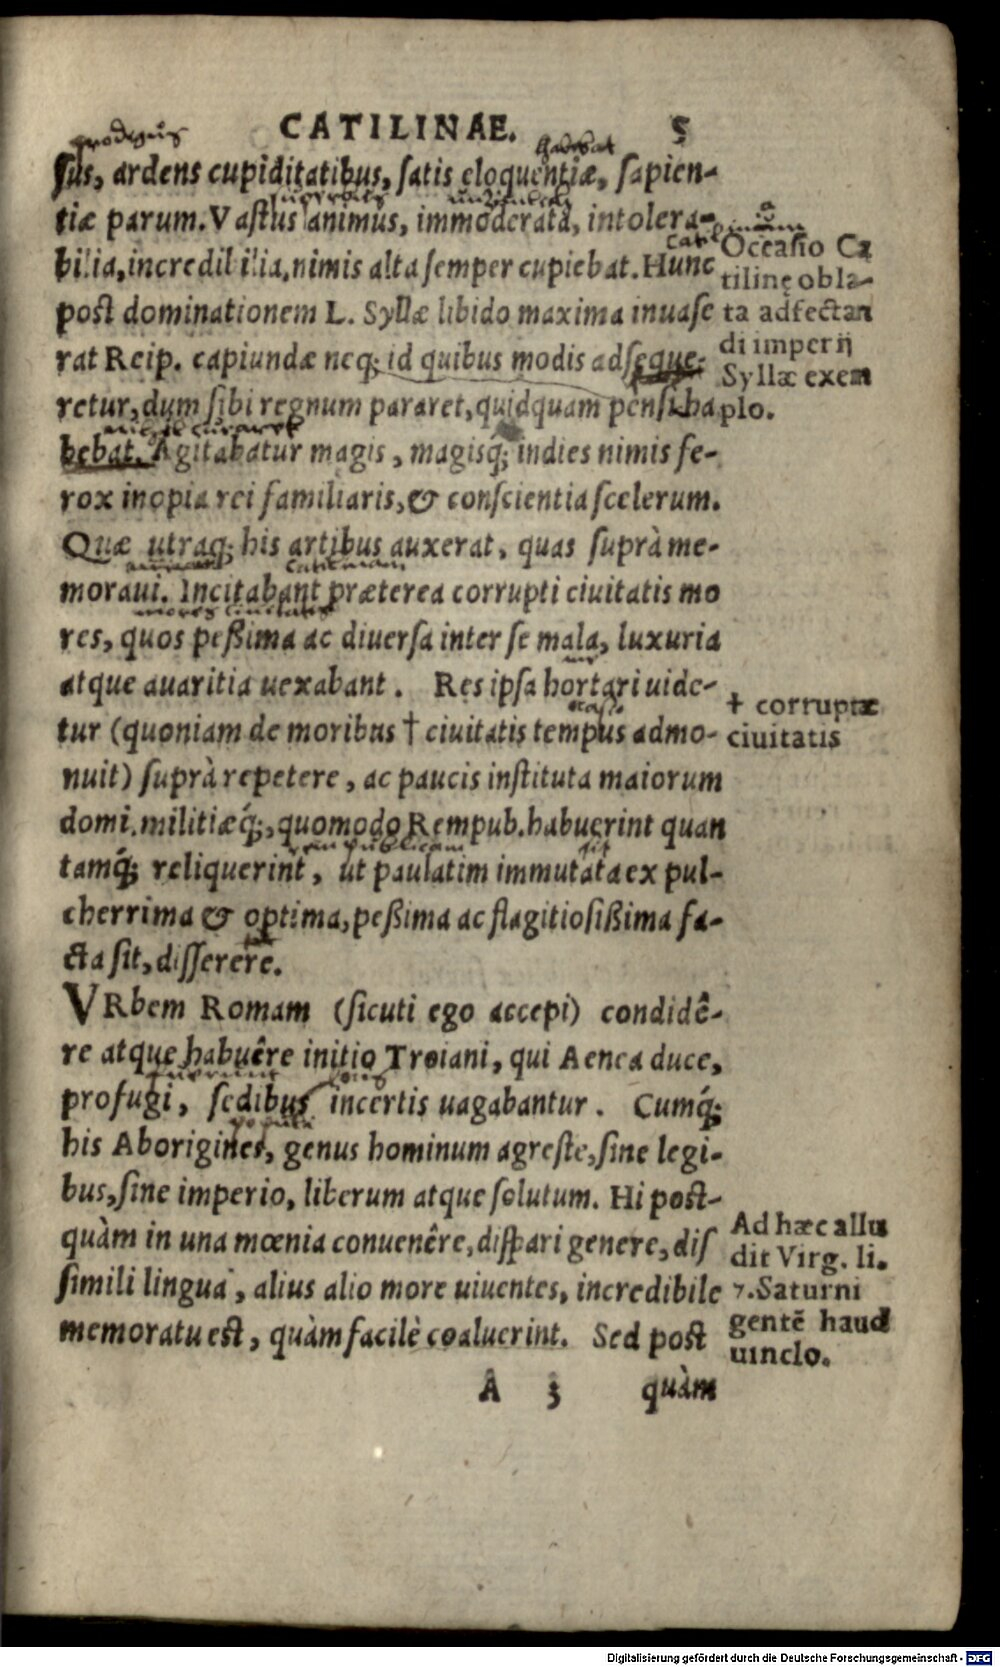 CATILINAE. 5
prodigus
habebat
sus, ardens cupiditatibus, satis eloquentiæ, sapien-
tiæ parum. Vastus animus, immoderata, intolera-
bilia, incredibilia, nimis alta semper cupiebat. Hunc
post dominationem L. Syllæ libido maxima inuase
rat Reip. capiundæ neq; id quibus modis adseque-
retur, dum sibi regnum pararet, quidquam pensi ha
bebat. Agitabatur magis, magisq́; indies nimis fe-
rox inopia rei familiaris, & conscientia scelerum.
Quæ utraq; his artibus auxerat, quas suprà me-
moraui. Incitabant præterea corrupti ciuitatis mo
res, quos peßima ac diuersa inter se mala, luxuria
atque auaritia uexabant. Res ipsa hortari uide-
tur (quoniam de moribus † ciuitatis tempus admo-
nuit) suprà repetere, ac paucis instituta maiorum
domi. militiæq́;, quomodo Rempub. habuerint quan
rem publicam
sit
tamq́; reliquerint, ut paulatim immutata ex pul-
cherrima & optima, peßima ac flagitiosißima fa-
cta sit, disserere.
VRbem Romam (sicuti ego accepi) condidê-
re atque habuêre initio Troiani, qui Aenea duce,
fuerunt
profugi, sedibus incertis uagabantur. Cumq́;
his Aborigines, genus hominum agreste, sine legi-
bus, sine imperio, liberum atque solutum. Hi post-
quàm in una mœnia conuenêre, dispari genere, dis
simili lingua, alius alio more uiuentes, incredibile
memoratu est, quàm facilè coaluerint. Sed post
A 3 quàm
Occasio Ca
tilinę obla-
ta adfectan
di imperij
Syllæ exem
plo.
† corruptæ
ciuitatis
Ad hæc allu
dit Virg. li.
7. Saturni
gentē haud
uinclo.
Digitalisierung gefördert durch die Deutsche Forschungsgemeinschaft - DFG